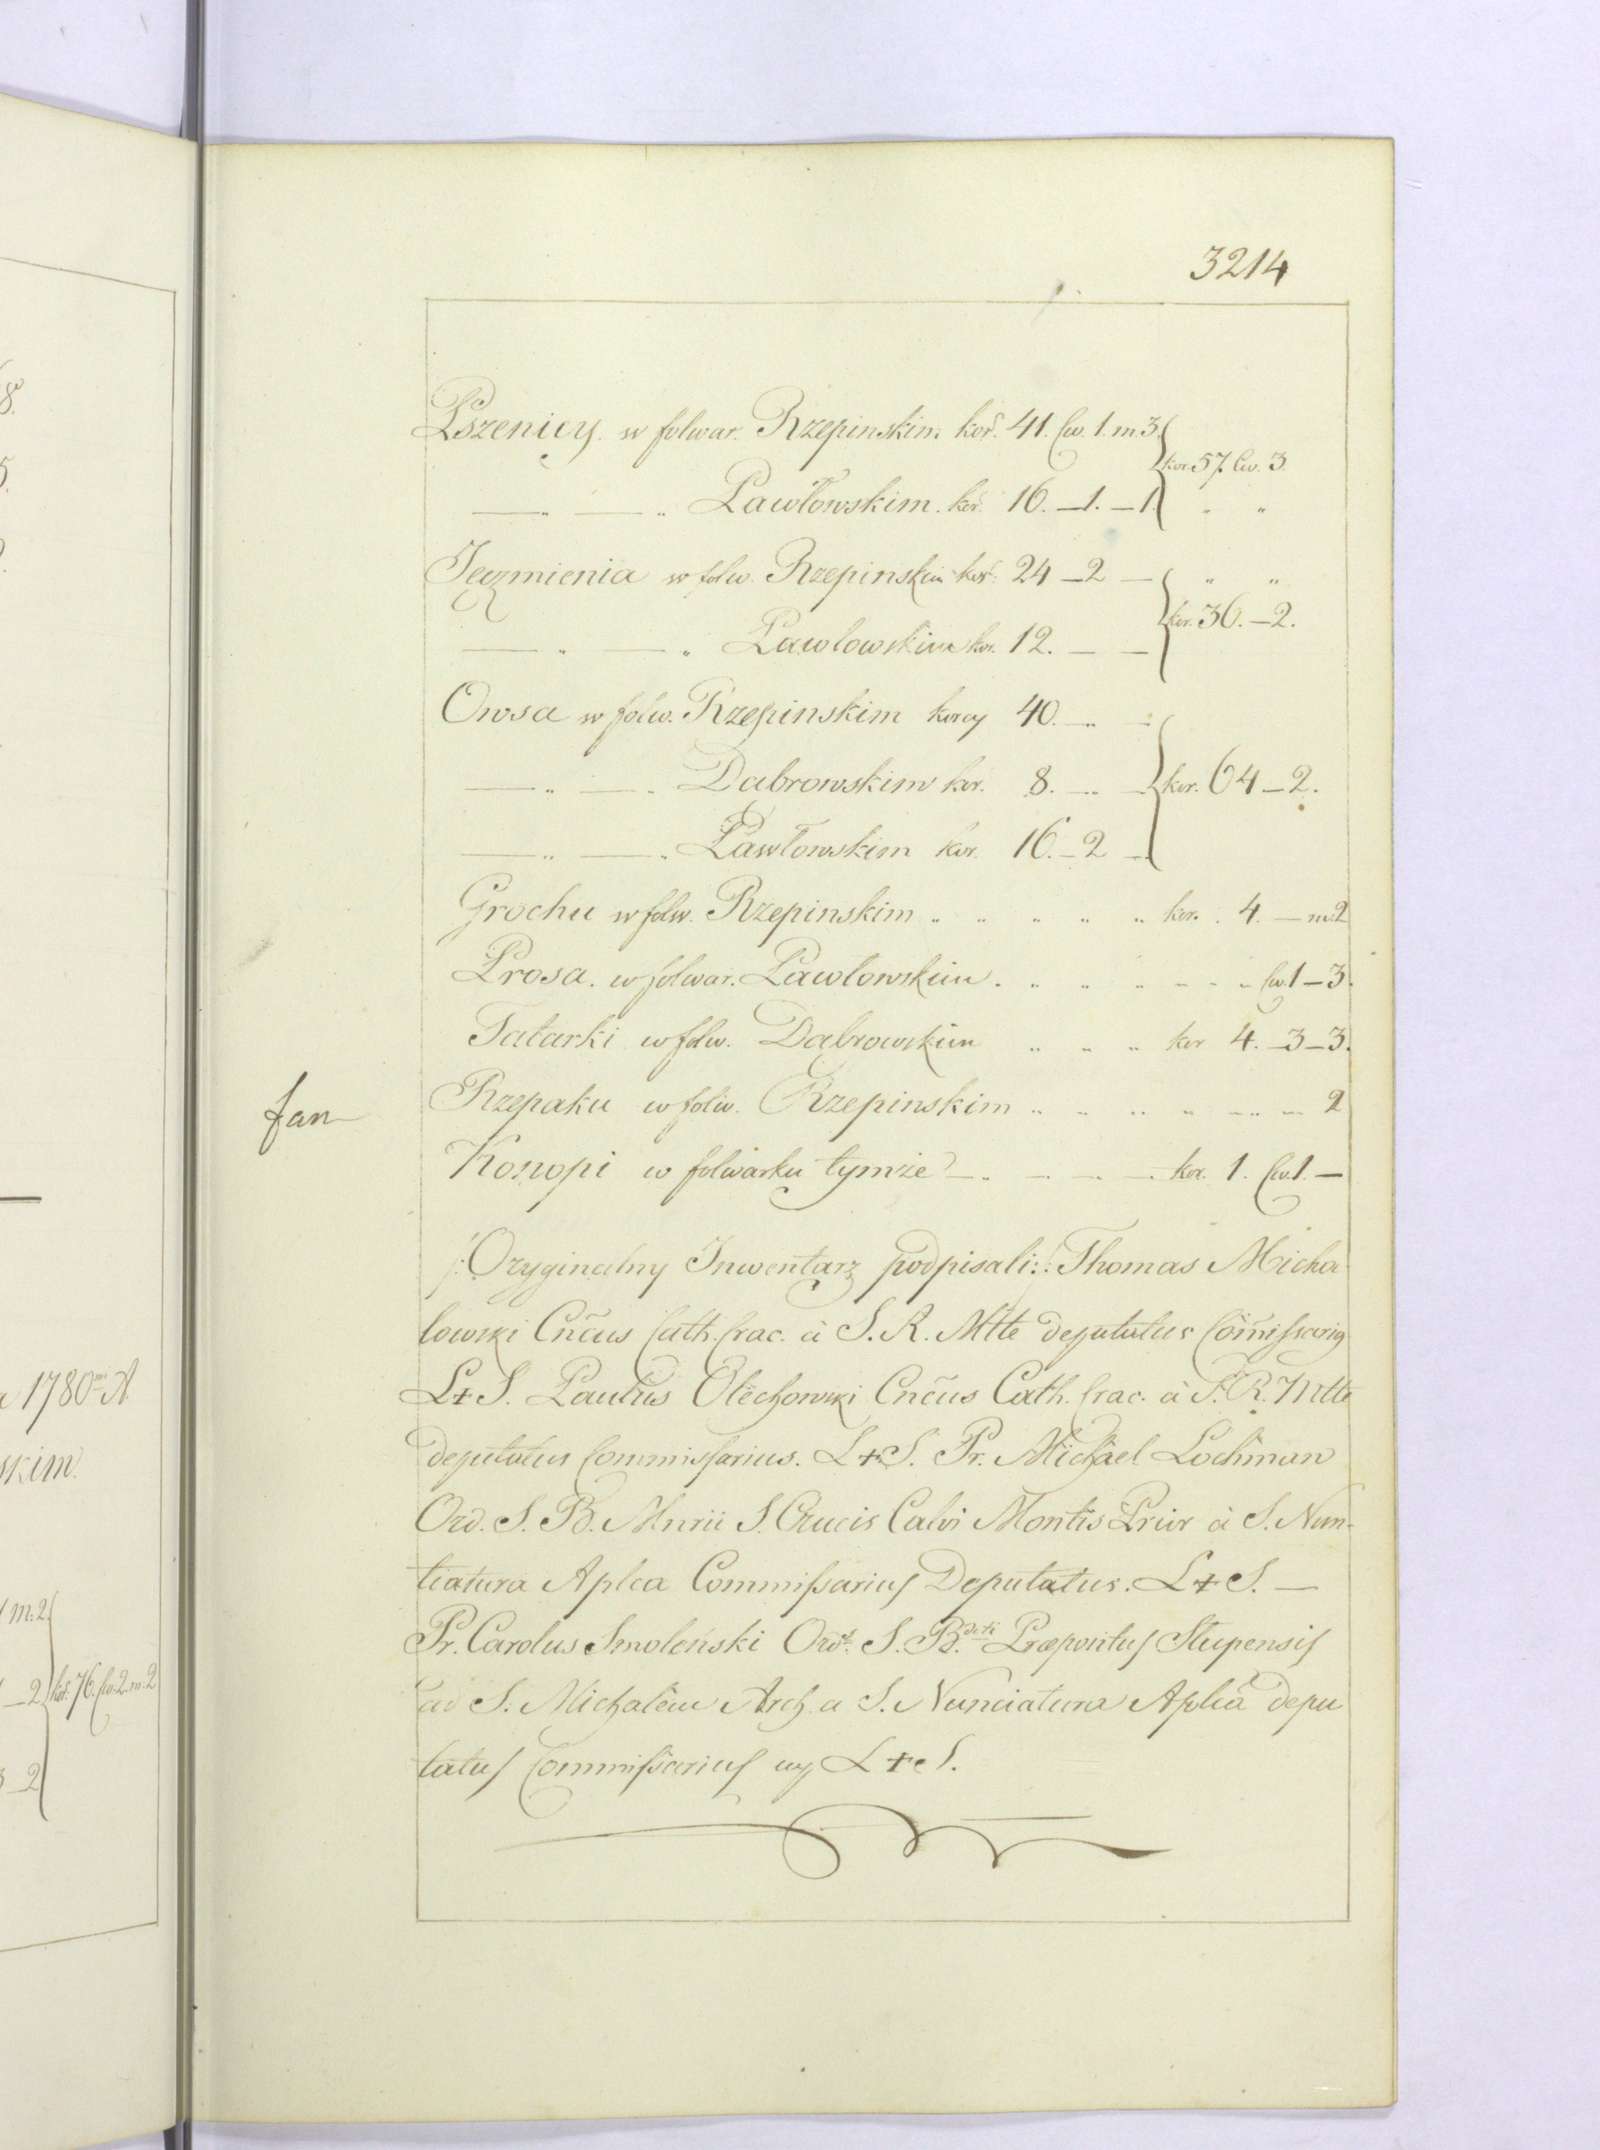 3214
Pszenicy w folwar. Rzepinskim kor. 41. Cw. 1. m. 3.
kor. 57. Cw. 3.
—„—„ Pawłowskim. kor. 16. —1. —1. „ „
Jęczmienia w folw. Rzepinskim kor. 24 —2 — „ „
kor. 36. —2.
—„—„ Pawlowskim kor. 12. — —
Owsa w folw. Rzepinskim korcy 40. —„ —
—„—„ Dabrowskim kor. 8. —„ — kor. 64 —2.
—„—„ Pawłowskim kor. 16. —2 —
Grochu w folw. Rzepinskim „ „ „ „ „ kor. 4. — m. 2
Prosa. w folwar. Pawłowskim. „ „ „ „ „ Cw. 1 —3.
Tatarki w folw. Dabrowskim „ „ „ kor 4. —3 —3.
Rzepaku w folw. Rzepinskim „ „ „ „ „ — 2
fan
Konopi w folwarku tymże —„ — — — kor. 1. Cw. 1. —
/: Oryginalny Inwentarz podpisali :/: Thomas Micha
lowski Cnčus Cath. Crac. à S. R. Mtte deputatus Com̃issarig
L+S. Paulus Olechowski Cnčus Cath. Crac. à S. R. Mtte
deputatus Commissarius. L+S. Pr. Michael Lochman
Ord. S. B. Mnrii S. Crucis Calvi Montis Prior à S. Nun-
tiatura Aplca Commissarius Deputatus. L+S. —
Pr. Carolus Smoleński Ord. S. B. Præpositus Slupensis
ad S. Michalem Arch a S. Nunciatura Aplca depu
tatus Commissarius L+S.
8.
5.
a 1780 A
skim.
m. 2
—2 kor. 76. Cw. 2. m. 2
3 —2